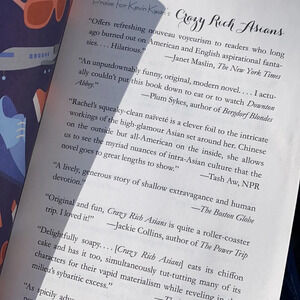 Praise for Kevin Kwan's
Crazy Rich Asians
"Offers refreshing nouveau voyeurism to readers who long
ago burned out on American and English aspirational fanta-
sies. . . . Hilarious."
—Janet Maslin, The New York Times
"An unputdownably funny, original, modern novel. . . . I actu-
ally couldn't put this book down to eat or to watch Downton
Abbey."
—Plum Sykes, author of Bergdorf Blondes
"Rachel's squeaky-clean naïveté is a clever foil to the intricate
workings of the high-glamour Asian set around her. Chinese
on the outside but all-American on the inside, she allows
us to see the myriad nuances of intra-Asian culture that the
novel goes to great lengths to show."
—Tash Aw, NPR
"A lively, generous story of shallow extravagance and human
devotion."
—The Boston Globe
"Original and fun, Crazy Rich Asians is quite a roller-coaster
trip. I loved it!"
—Jackie Collins, author of The Power Trip
"Delightfully soapy. . . . [Crazy Rich Asians] eats its chiffon
cake and has it too, simultaneously tut-tutting many of its
characters for their vapid materialism while reveling in the
milieu's sybaritic excess."
"As spicily